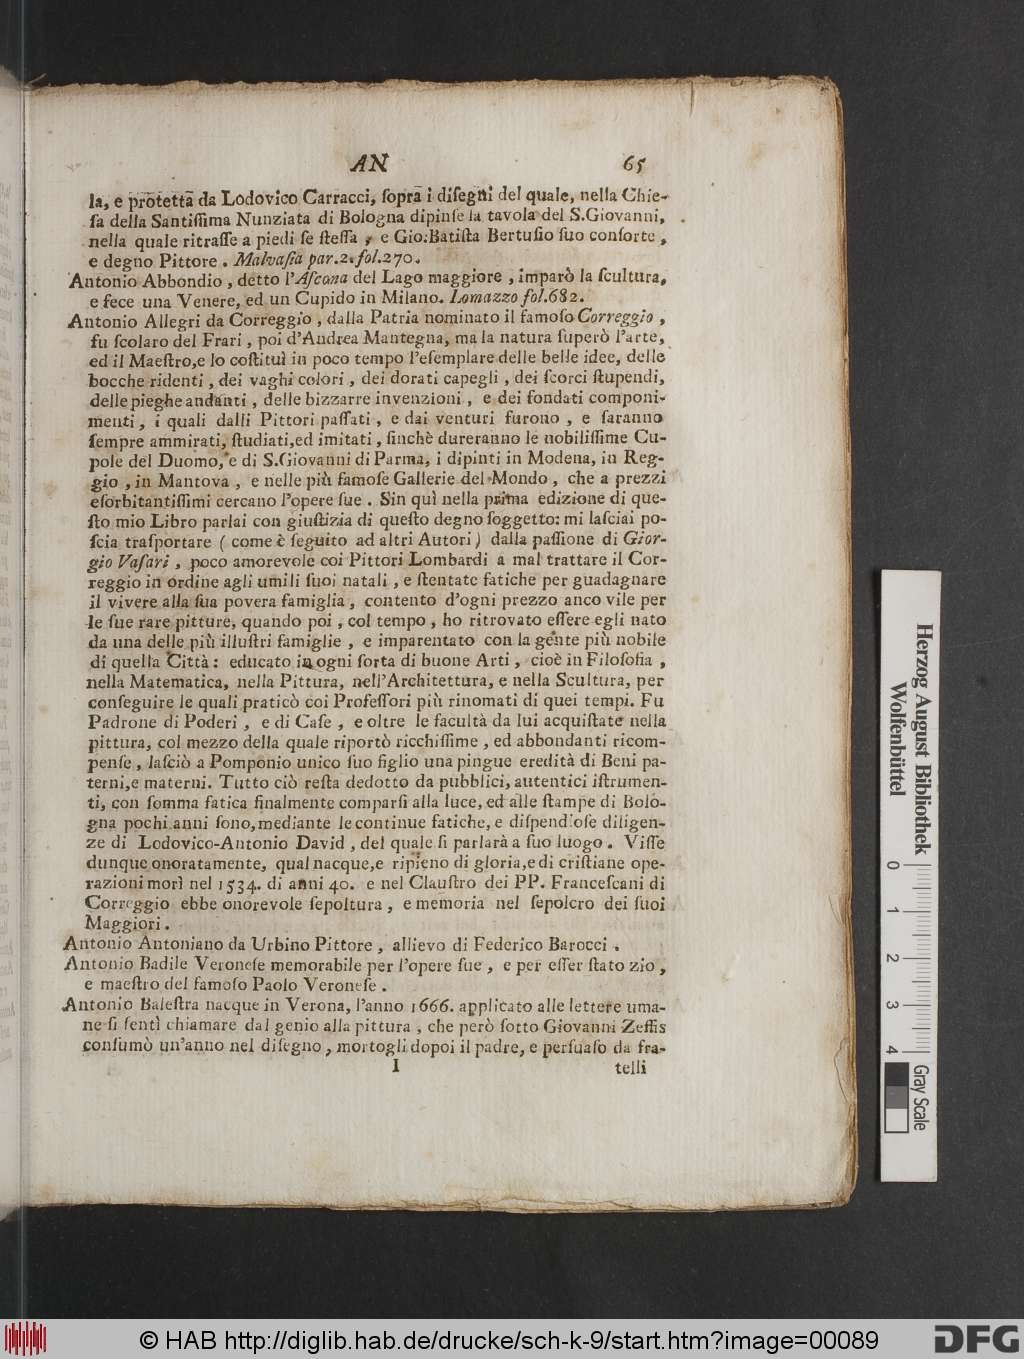 AN 65
la, e protetta da Lodovico Carracci, ſopra i diſegni del quale, nella Chie-
ſa della Santiſſima Nunziata di Bologna dipinſe la tavola del S.Giovanni,
nella quale ritraſſe a piedi ſe ſteſſa, e Gio:Batiſta Bertuſio ſuo conſorte,
e degno Pittore. Malvaſia par.2.fol.270.
Antonio Abbondio, detto l'Aſcona del Lago maggiore, imparò la ſcultura,
e fece una Venere, ed un Cupido in Milano. Lomazzo fol.682.
Antonio Allegri da Correggio, dalla Patria nominato il famoſo Correggio,
fu ſcolaro del Frari, poi d'Andrea Mantegna, ma la natura ſuperò l'arte,
ed il Maeſtro,e lo coſtituì in poco tempo l'eſemplare delle belle idee, delle
bocche ridenti, dei vaghi colori, dei dorati capegli, dei ſcorci ſtupendi,
delle pieghe andanti, delle bizzarre invenzioni, e dei fondati componi-
menti, i quali dalli Pittori paſſati, e dai venturi furono, e ſaranno
ſempre ammirati, ſtudiati,ed imitati, ſinchè dureranno le nobiliſſime Cu-
pole del Duomo, e di S.Giovanni di Parma, i dipinti in Modena, in Reg-
gio, in Mantova, e nelle più famoſe Gallerie del Mondo, che a prezzi
eſorbitantiſſimi cercano l'opere ſue. Sin quì nella prima edizione di que-
ſto mio Libro parlai con giuſtizia di queſto degno ſoggetto: mi laſciai po-
ſcia traſportare ( come è ſeguito ad altri Autori ) dalla paſſione di Gior-
gio Vaſari, poco amorevole coi Pittori Lombardi a mal trattare il Cor-
reggio in ordine agli umili ſuoi natali, e ſtentate fatiche per guadagnare
il vivere alla ſua povera famiglia, contento d'ogni prezzo anco vile per
le ſue rare pitture, quando poi, col tempo, ho ritrovato eſſere egli nato
da una delle più illuſtri famiglie, e imparentato con la gente più nobile
di quella Città: educato in ogni ſorta di buone Arti, cioè in Filoſofia,
nella Matematica, nella Pittura, nell'Architettura, e nella Scultura, per
conſeguire le quali praticò coi Profeſſori più rinomati di quei tempi. Fu
Padrone di Poderi, e di Caſe, e oltre le facultà da lui acquiſtate nella
pittura, col mezzo della quale riportò ricchiſſime, ed abbondanti ricom-
penſe, laſciò a Pomponio unico ſuo figlio una pingue eredità di Beni pa-
terni,e materni. Tutto ciò reſta dedotto da pubblici, autentici iſtrumen-
ti, con ſomma fatica finalmente comparſi alla luce, ed alle ſtampe di Bolo-
gna pochi anni ſono,mediante le continue fatiche, e diſpendioſe diligen-
ze di Lodovico-Antonio David, del quale ſi parlarà a ſuo luogo. Viſſe
dunque onoratamente, qual nacque,e ripieno di gloria,e di criſtiane ope-
razioni morì nel 1534. di anni 40. e nel Clauſtro dei PP. Franceſcani di
Correggio ebbe onorevole ſepoltura, e memoria nel ſepolcro dei ſuoi
Maggiori.
Antonio Antoniano da Urbino Pittore, allievo di Federico Barocci.
Antonio Badile Veroneſe memorabile per l'opere ſue, e per eſſer ſtato zio,
e maeſtro del famoſo Paolo Veroneſe.
Antonio Baleſtra nacque in Verona, l'anno 1666. applicato alle lettere uma-
ne ſi ſentì chiamare dal genio alla pittura, che però ſotto Giovanni Zeffis
conſumò un'anno nel diſegno, mortogli dopoi il padre, e perſuaſo da fra-
I telli
Herzog August Bibliothek
Wolfenbüttel
0 1 2 3 4
Gray Scale
© HAB http://diglib.hab.de/drucke/sch-k-9/start.htm?image=00089
DFG